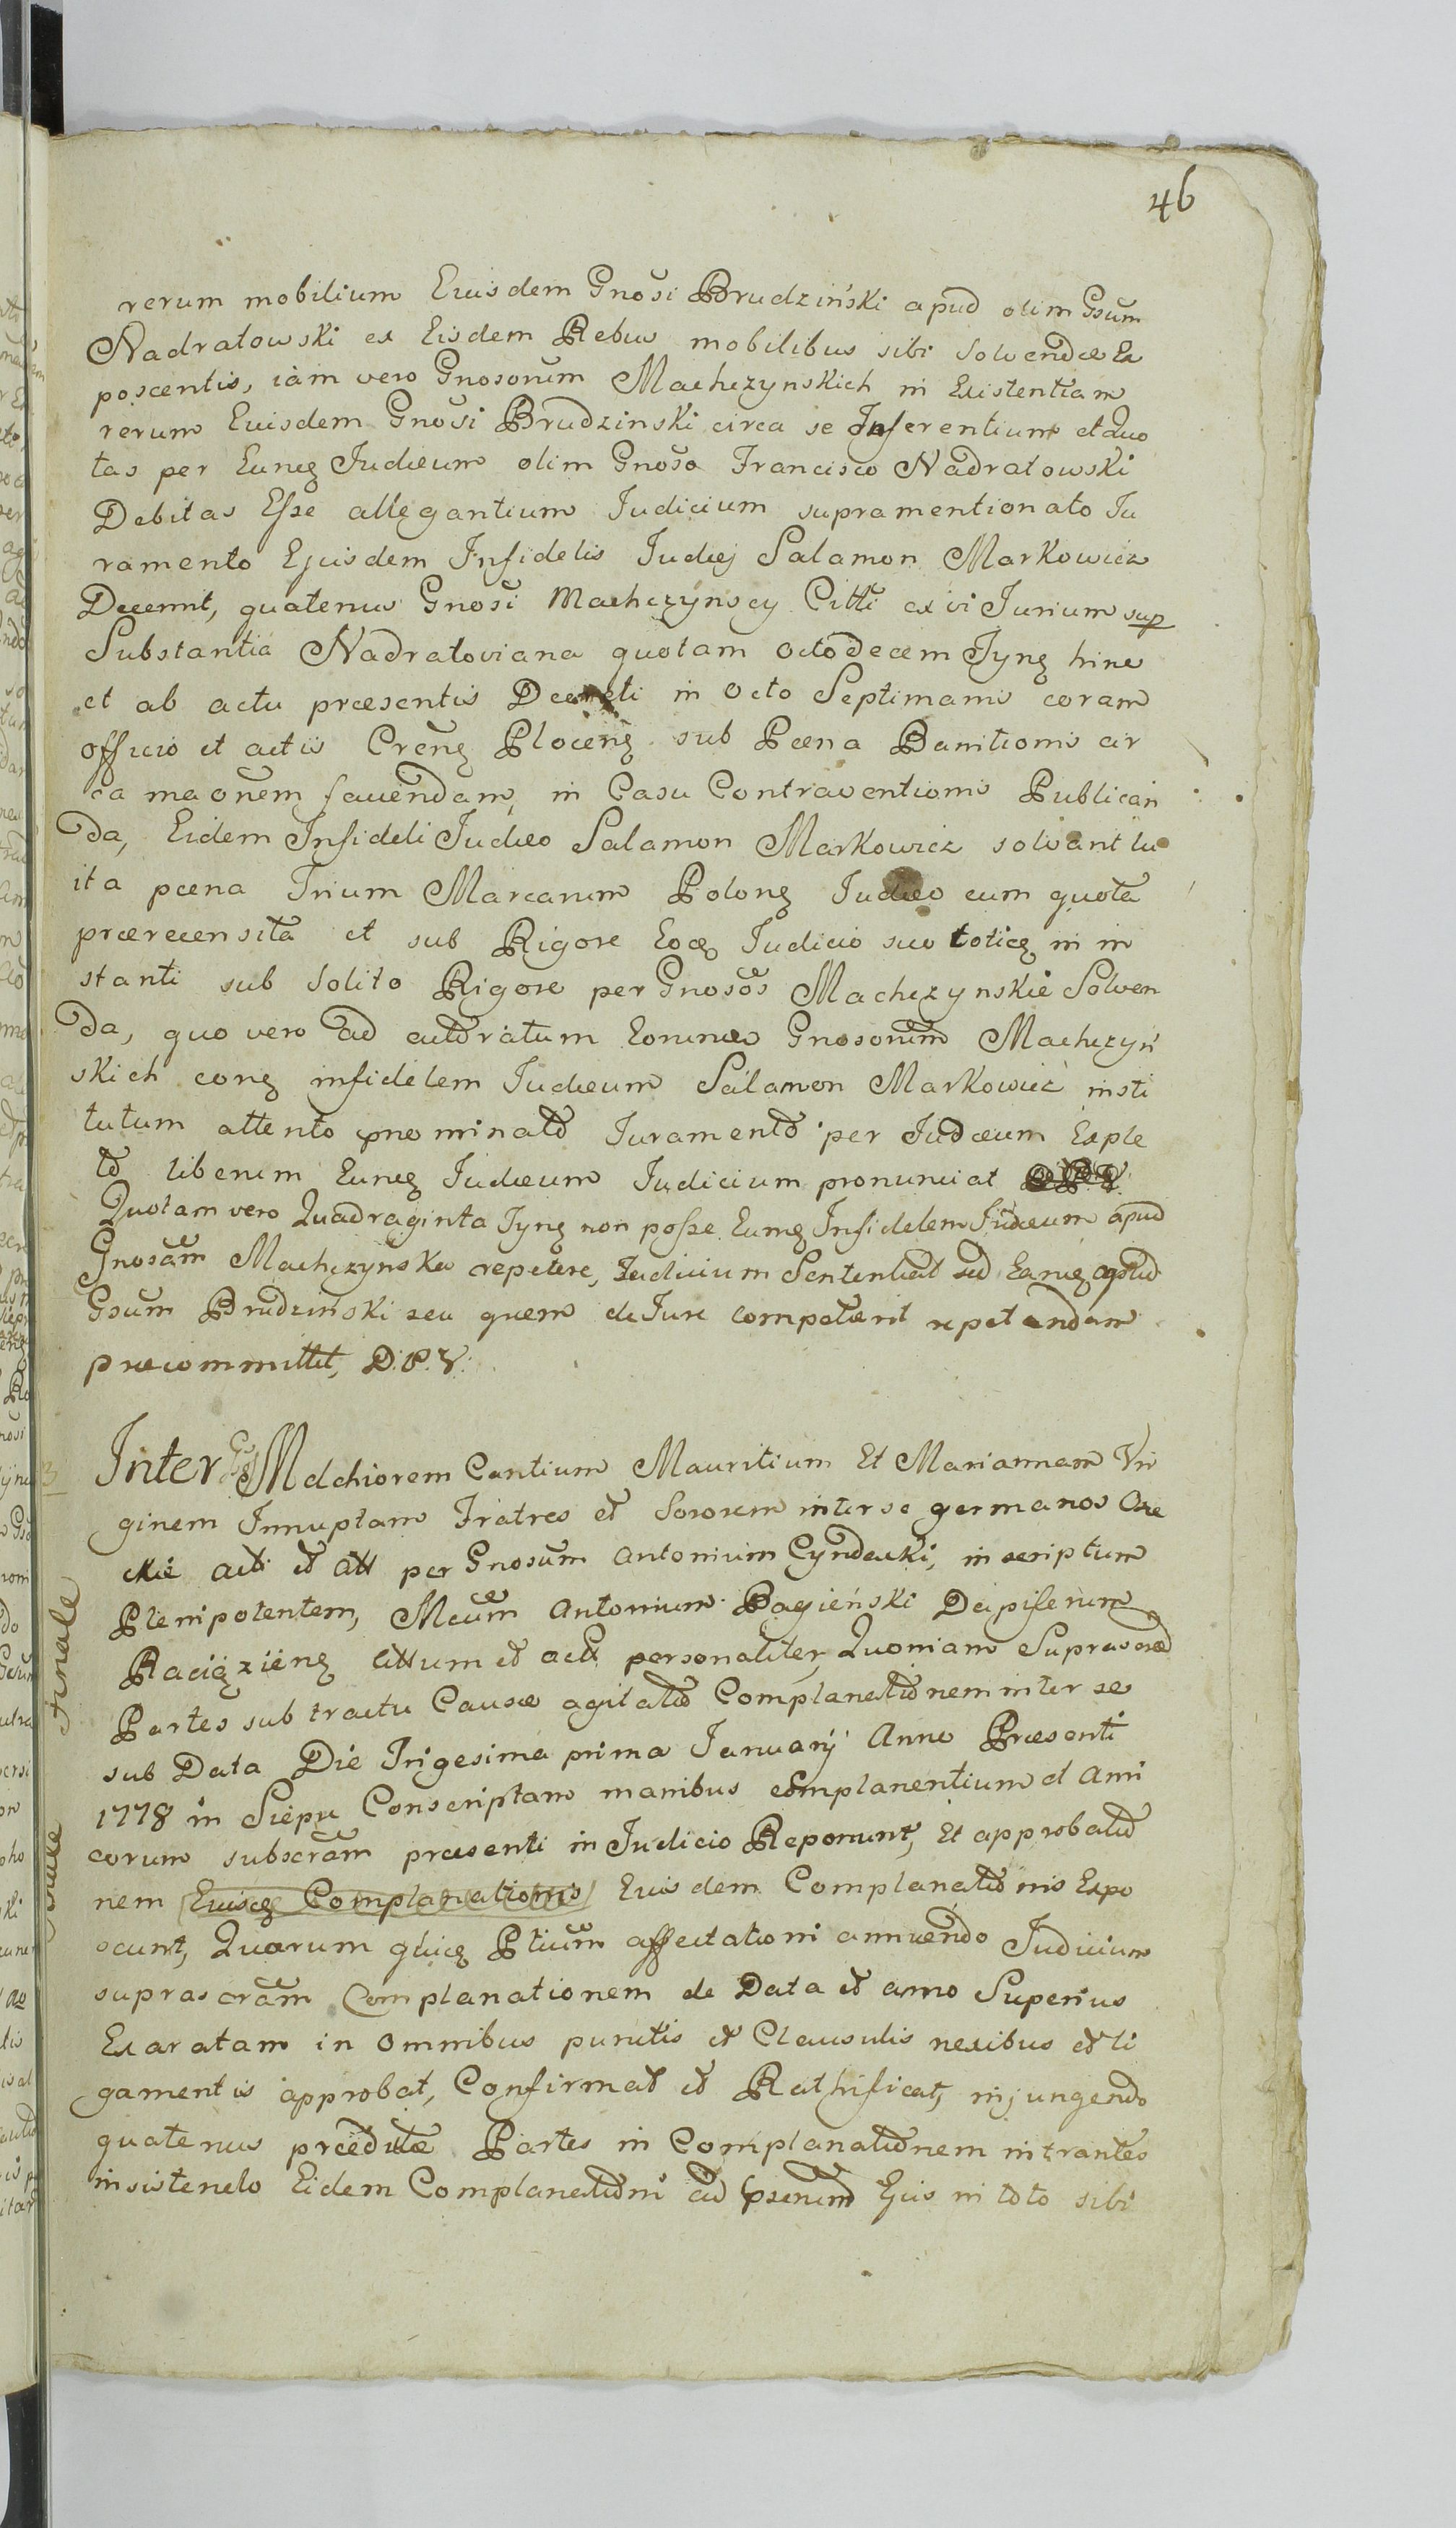 46
rerum mobilium Euisdem Gnosi Brudziński apud olim Gsum
Nadratowski ex Eisdem Rebus mobilibus sibi solvendæ Ex
poscentis, iam vero Gnosorum Machczynskich in Existentiam
rerum Euisdem Gnosi Brudzinski circa se Inferentium et Quo
tas per Eunq Iudæum olim Gnoso Francisco Nadratowski
Debitas Esse allegantium Iudicium supramentionato Iu
ramento Ejusdem Infidelis Iudæj Salamon Markowicz
Decernit, quatenus Gnosi Machczynscy Citti ex vi Iurium sup
Substantia Nadratoviana quotam octodecem Tynq hinc
et ab actu præsentis Decreti in octo Septimanis coram
officio et actis Crenq Plocenq sub Pæna Banitionis cir
ca maonem favendam, in Casu Contraventionis Publican
da, Eidem Infideli Iudæo Salamon Markowicz solvant lu
ita pæna Trium Marcarum Polonq Iudæo cum quota
prærecensita et sub Rigore Eoq Iudicio suo toticq in in
stanti sub solito Rigore per Gnosos Machczynskie Solven
da, quo vero ad cittatum Gnosorum Machczyń
skich conq infidelem Iudæum Salamon Markowicz insti
tutum attento Iuramento per Iudæum Exple
to liberum Eunq Iudæum Iudicium pronunciat
Quotam vero Quadraginta Tynq non posse Eumq Infidelem Iudæum apud
Gnosam Machczynska repetere, Iudicium Sententiat sed Eamq apud
Gsum Brudziński seu quem de Iure competierit repetendam
præcommittit, D.P.V.
Inter Melchiorem Cantium Mauritium Et Mariannam Vir
ginem Innuptam Fratres et Sororem inter se germanos
ckie act et Att per Gnosum Antonium Cyndacki, in scriptum
Plenipotentem, Mcum Antonium Bagieński Dapiferum
Raciązienq Cittum et act personaliter, Quoniam Suprascræ
Partes sub tractu Causæ agitatio Complanationem inter se
sub Data Die Trigesima prima Ianuarij Anno Præsenti
1778 in Siepu Conscriptam manibus complanentium et Ami
corum subscram præsenti in Iudicio Reponunt, Et approbatio
nem Euiscq Complanationis Euisdem Complanationis Expo
scunt, Quarum Ptium affectationi annuendo Iudicium
suprascram Complanationem de Data et anno Superius
Exaratam in omnibus punctis et Clausulis nexibus et li
gamentis approbat, Confirmat et Rathificat, injungendo
quatenus prædictæ Partes in Complanationem intrantes
insistendo Eidem Complanationi ad Ejus in toto sibi
Finale